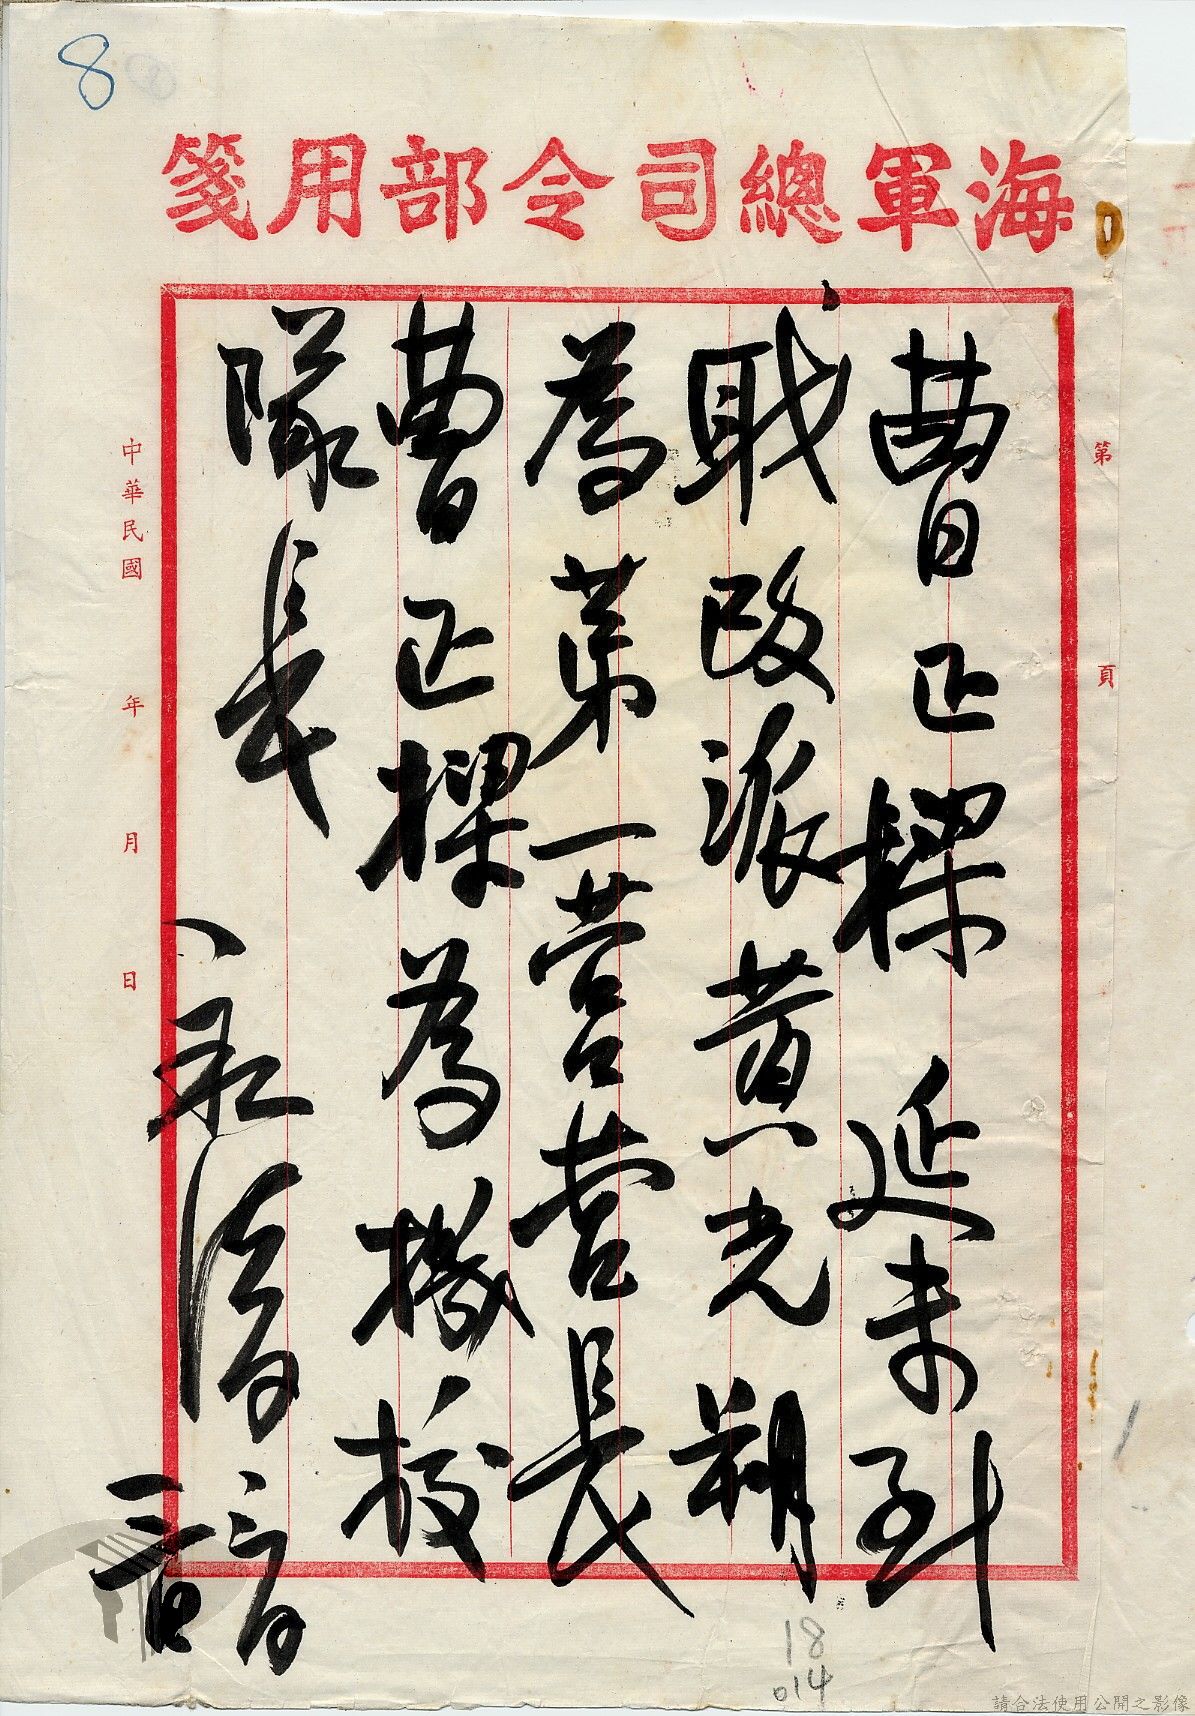 8
海軍總司令部用箋
第 頁
曹正樑 延未到
職改派黃光朔
為第一營營長
曹正樑為機校
隊長
二月
中華民國 年 月 日
18
014
請合法使用公開之影像